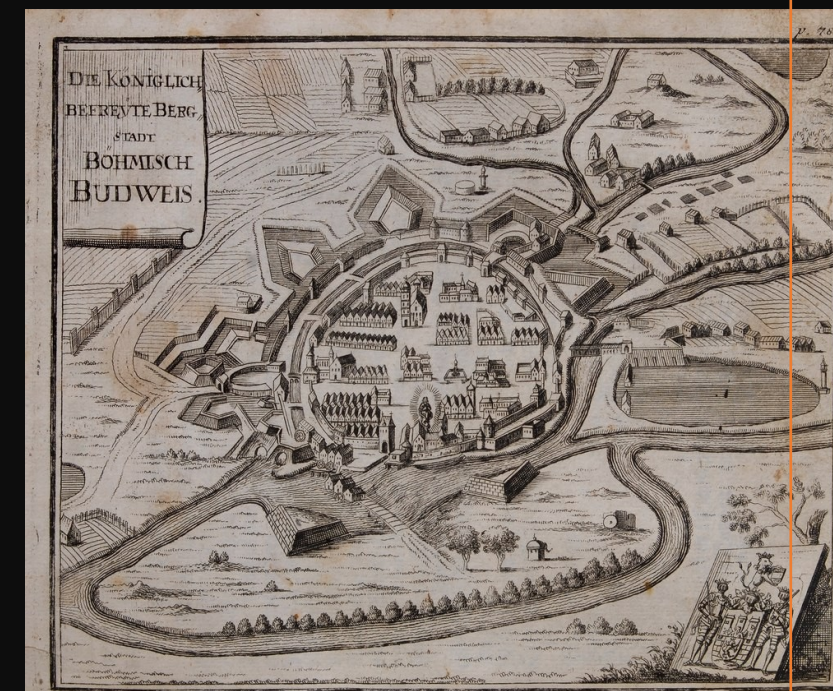 p. 78
DIE KÖNIGLICH
BEFREYTE BERG„
STADT
BÖHMISCH
BUDWEIS.